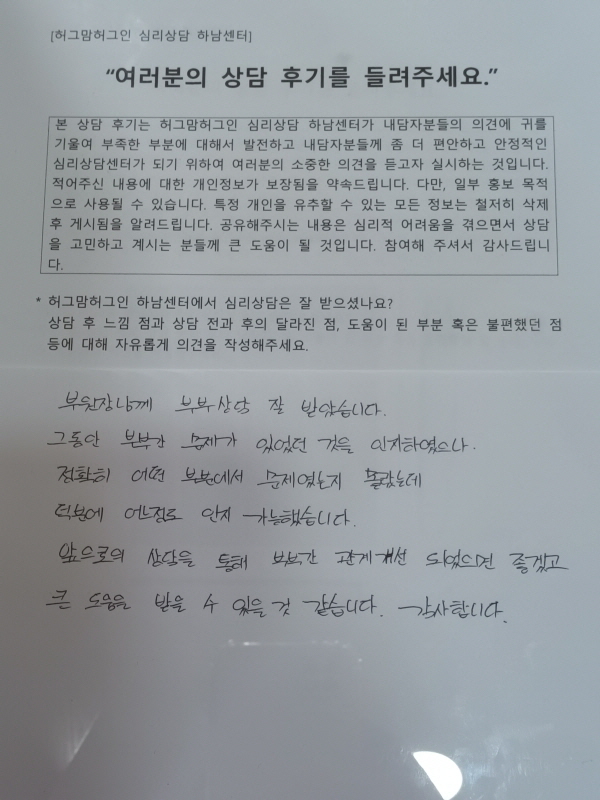 [허그맘허그인 심리상담 하남센터]
“여러분의 상담 후기를 들려주세요.”
본 상담 후기는 허그맘허그인 심리상담 하남센터가 내담자분들의 의견에 귀를
기울여 부족한 부분에 대해서 발전하고 내담자분들께 좀 더 편안하고 안정적인
심리상담센터가 되기 위하여 여러분의 소중한 의견을 듣고자 실시하는 것입니다.
적어주신 내용에 대한 개인정보가 보장됨을 약속드립니다. 다만, 일부 홍보 목적
으로 사용될 수 있습니다. 특정 개인을 유추할 수 있는 모든 정보는 철저히 삭제
후 게시됨을 알려드립니다. 공유해주시는 내용은 심리적 어려움을 겪으면서 상담
을 고민하고 계시는 분들께 큰 도움이 될 것입니다. 참여해 주셔서 감사드립니
다.
* 허그맘허그인 하남센터에서 심리상담은 잘 받으셨나요?
상담 후 느낌 점과 상담 전과 후의 달라진 점, 도움이 된 부분 혹은 불편했던 점
등에 대해 자유롭게 의견을 작성해주세요.
부원장님께 부부상담 잘 받았습니다.
그동안 부부간 문제가 있었던 것을 인지하였으나.
정확히 어떤 부분에서 문제였는지 몰랐는데
덕분에 어느정도 인지 가능했습니다.
앞으로의 상담을 통해 부부간 관계개선 되었으면 좋겠고
큰 도움을 받을 수 있을 것 같습니다. 감사합니다.